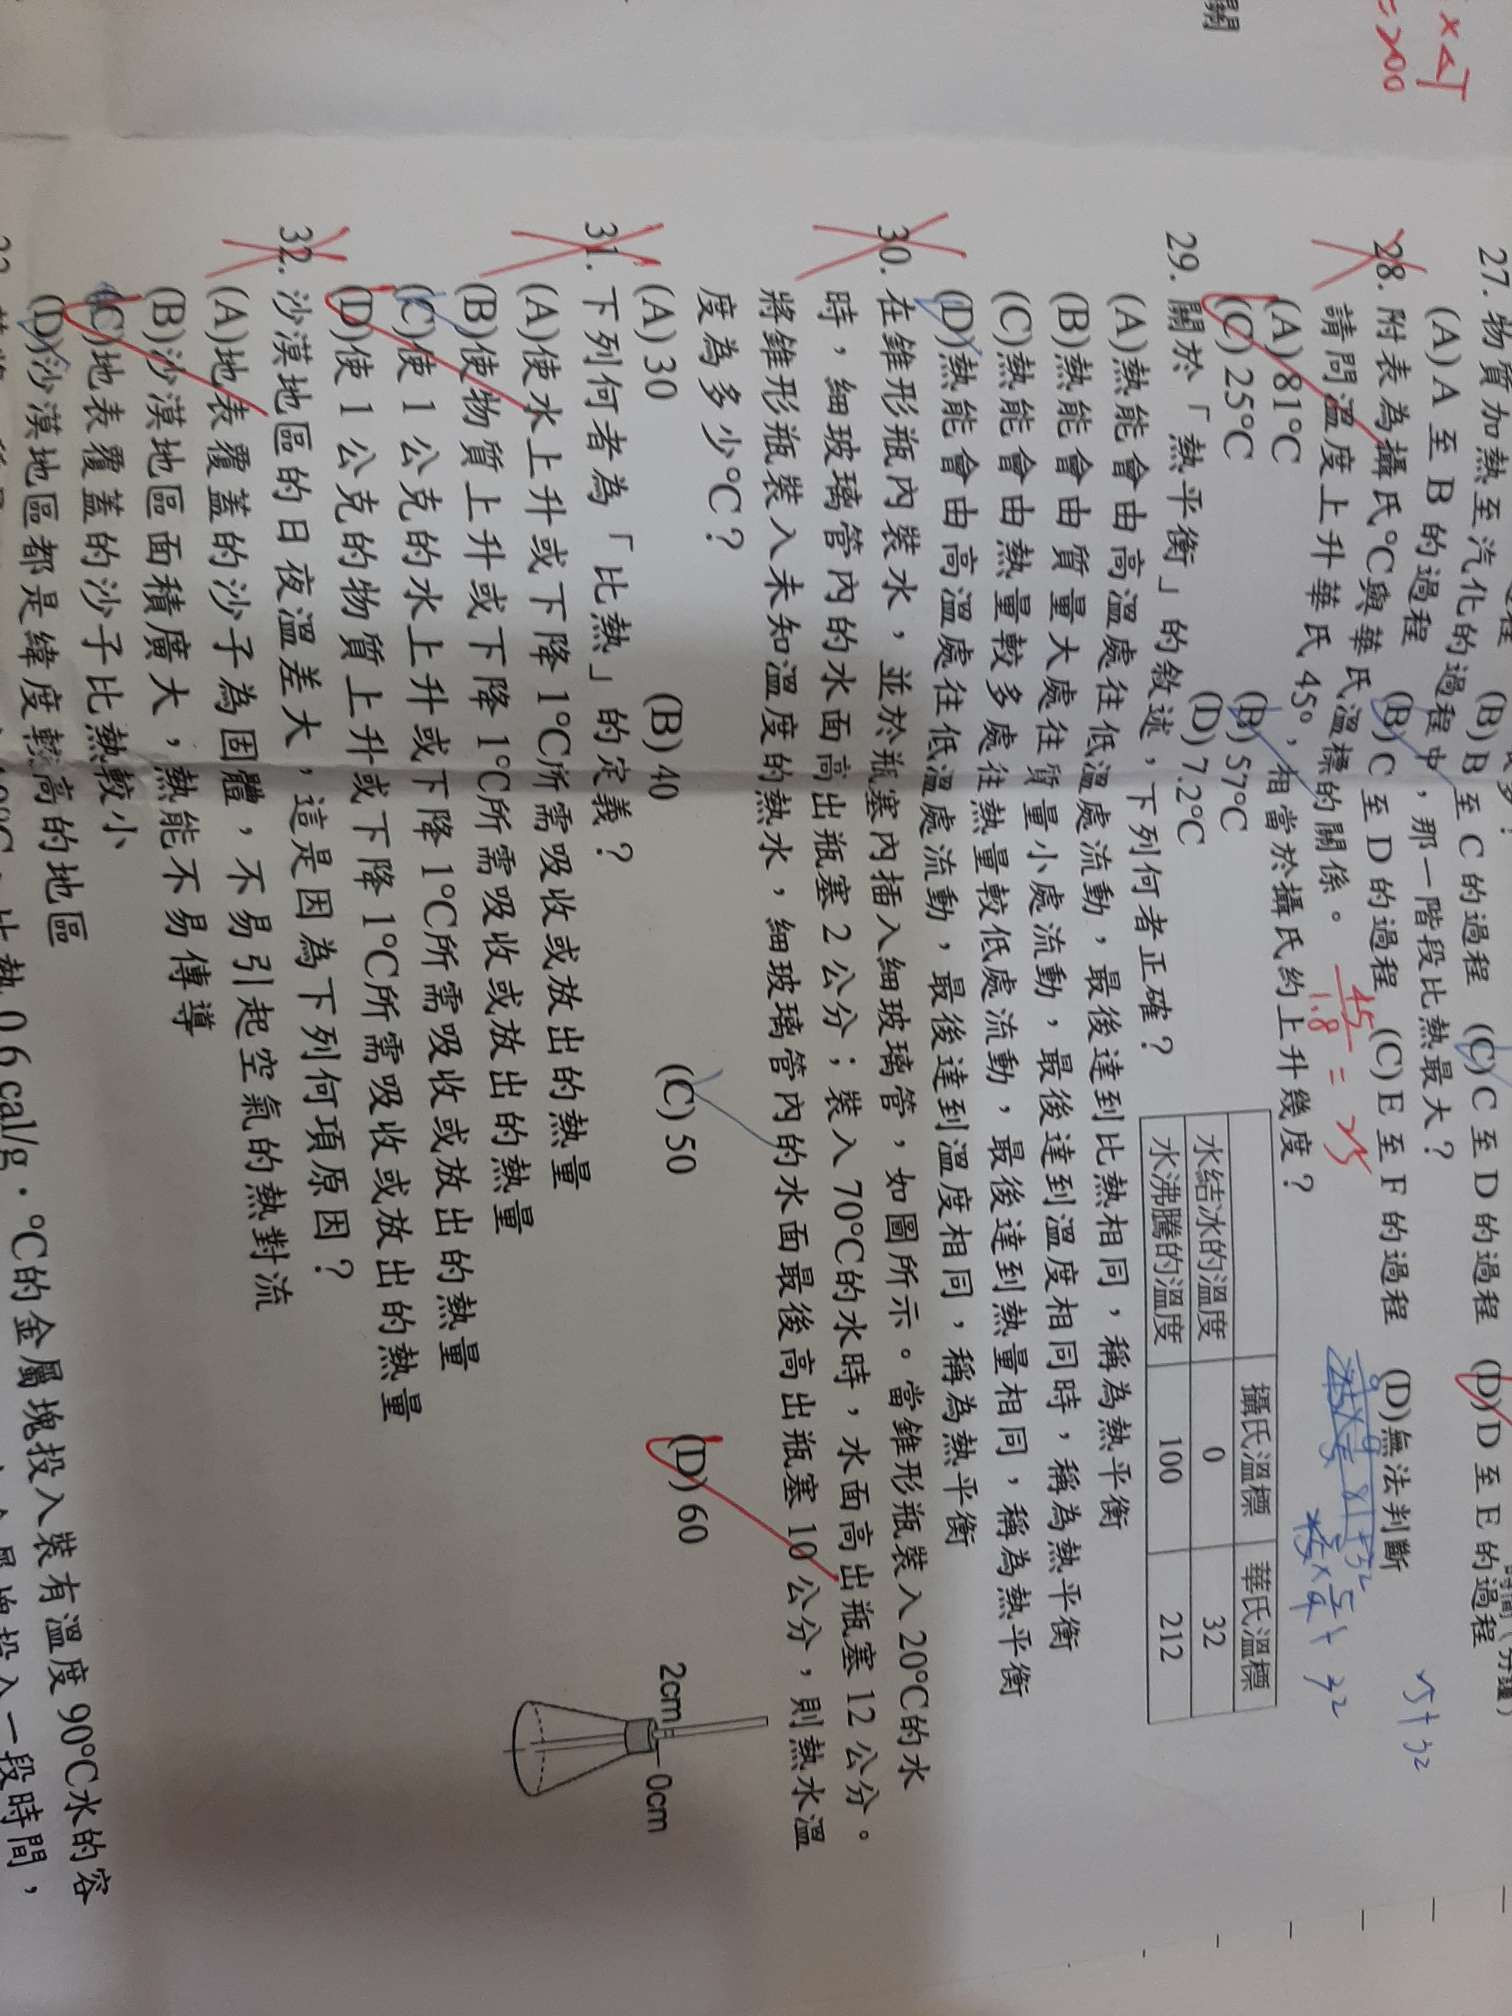 27. 物質加熱至汽化的過程中，那一階段比熱最大？
(A) A 至 B 的過程 (B) B 至 C 的過程 (C) C 至 D 的過程 (D) D 至 E 的過程
(B) C 至 D 的過程 (C) E 至 F 的過程 (D) 無法判斷
28. 附表為攝氏°C與華氏溫標的關係。
請問溫度上升華氏 45°，相當於攝氏約上升幾度？
(A) 81°C (B) 57°C
(C) 25°C (D) 7.2°C
45/1.8 = 25
攝氏溫標 華氏溫標
水結冰的溫度 0 32
水沸騰的溫度 100 212
29. 關於「熱平衡」的敘述，下列何者正確？
(A)熱能會由高溫處往低溫處流動，最後達到比熱相同，稱為熱平衡
(B)熱能會由質量大處往質量小處流動，最後達到溫度相同時，稱為熱平衡
(C)熱能會由熱量較多處往熱量較低處流動，最後達到熱量相同，稱為熱平衡
(D)熱能會由高溫處往低溫處流動，最後達到溫度相同，稱為熱平衡
30. 在錐形瓶內裝水，並於瓶塞內插入細玻璃管，如圖所示。當錐形瓶裝入 20°C的水
時，細玻璃管內的水面高出瓶塞 2 公分；裝入 70°C的水時，水面高出瓶塞 12 公分。
將錐形瓶裝入未知溫度的熱水，細玻璃管內的水面最後高出瓶塞 10 公分，則熱水溫
度為多少°C？
(A) 30 (B) 40 (C) 50 (D) 60
2cm
0cm
31. 下列何者為「比熱」的定義？
(A)使水上升或下降 1°C所需吸收或放出的熱量
(B)使物質上升或下降 1°C所需吸收或放出的熱量
(C)使 1 公克的水上升或下降 1°C所需吸收或放出的熱量
(D)使 1 公克的物質上升或下降 1°C所需吸收或放出的熱量
32. 沙漠地區的日夜溫差大，這是因為下列何項原因？
(A)地表覆蓋的沙子為固體，不易引起空氣的熱對流
(B)沙漠地區面積廣大，熱能不易傳導
(C)地表覆蓋的沙子比熱較小
(D)沙漠地區都是緯度較高的地區
比熱 0.6 cal/g·°C的金屬塊投入裝有溫度 90°C水的容
投入一段時間，